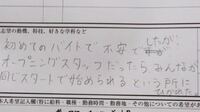 志望の動機、特技、好きな学科など
初めてのバイトで不安でしたが、
オープニングスタッフだったらみんなが
同じスタートで始められるという所に
ひかれた
本人希望記入欄(特に給料・職種・勤務時間・勤務地・その他についての希望が